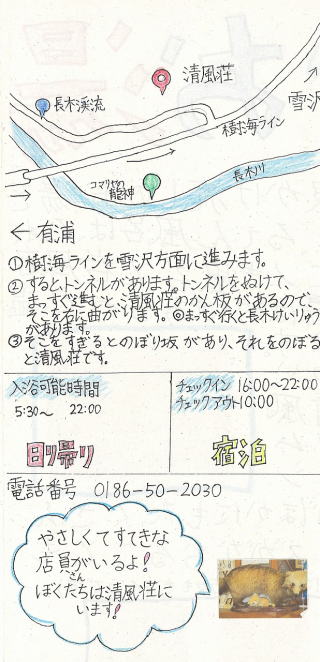 清風荘
長木渓流
雪沢
樹海ライン
コマリヤの
龍神
長木川
← 有浦
①樹海ラインを雪沢方面に進みます。
②するとトンネルがあります。トンネルをぬけて、
まっすぐ進むと、清風荘のかん板があるので、
そこを右に曲がります。◎まっすぐ行くと長木けいりゅう
があります。
③そこをすぎるとのぼり坂があり、それをのぼる
と清風荘です。
入浴可能時間
5:30～ 22:00
日帰り
チェックイン 16:00～22:00
チェックアウト10:00
宿泊
電話番号 0186-50-2030
やさしくてすてきな
店員さんがいるよ!
ぼくたちは清風荘に
います!